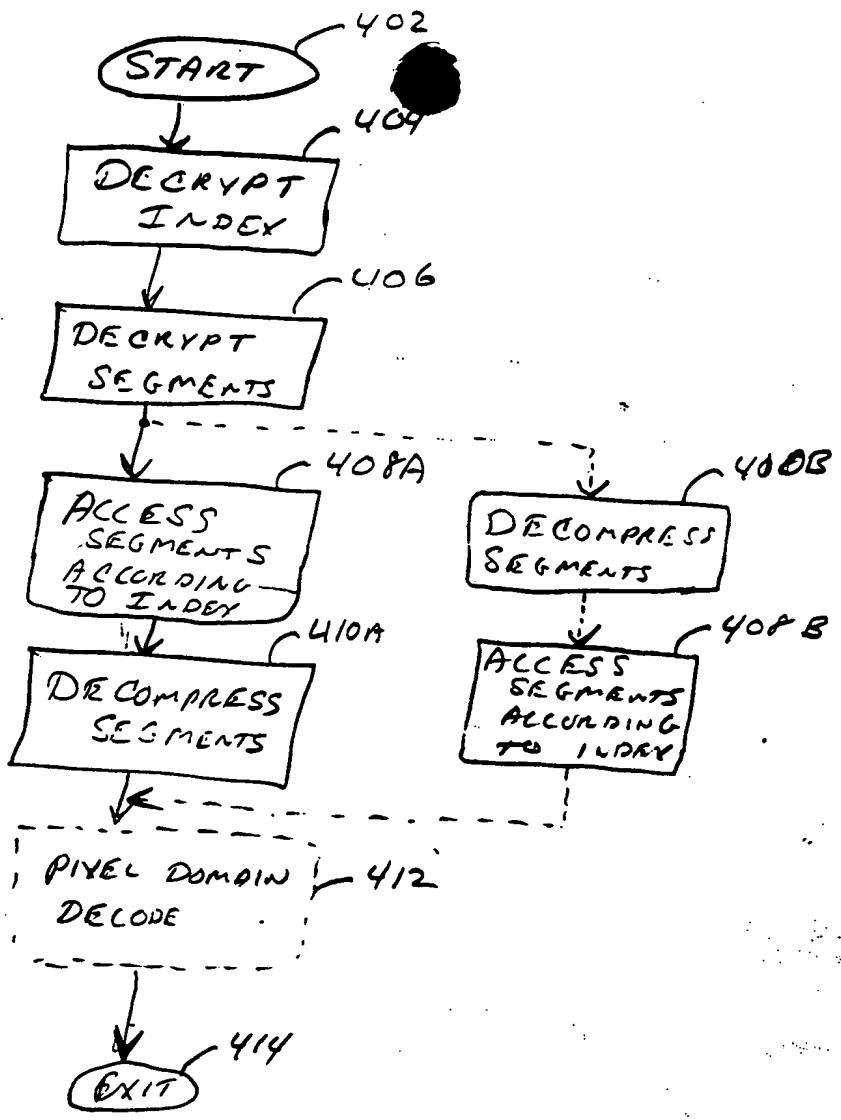 402
START
404
DECRYPT
INDEX
406
DECRYPT
SEGMENTS
408A
ACCESS
SEGMENTS
ACCORDING
TO INDEX
410A
DECOMPRESS
SEGMENTS
DECOMPRESS
SEGMENTS
408B
ACCESS
SEGMENTS
ACCORDING
TO INDEX
PIXEL DOMAIN
DECODE
412
414
EXIT